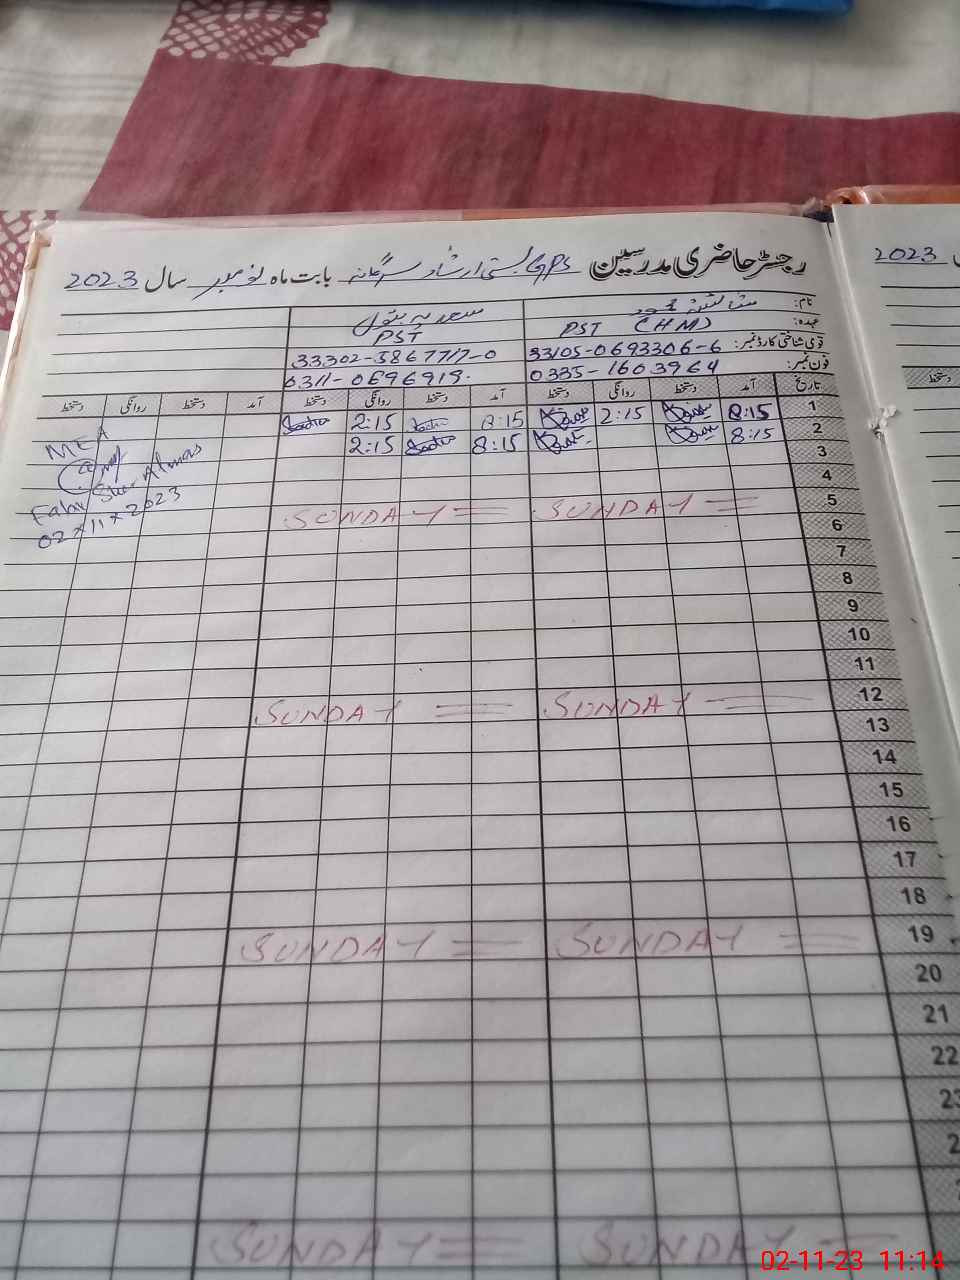 رجسٹر حاضری مدرسین GPS بستی ارشاد سرگانہ بابت ماہ نومبر سال 2023
2023
نام: سعدیہ بتول
عہدہ: PST (HM) PST
قومی شناختی کارڈ نمبر: 33105-0693306-6 33302-3867717-0
فون نمبر: 0335-1603964 0311-0696919
تاریخ آمد دستخط روانگی دستخط آمد دستخط روانگی دستخط آمد دستخط روانگی دستخط
دستخط
1 8:15 2:15 8:15 2:15
2 8:15 8:15 2:15
MEA
02 x 11 x 2023
3
4
5 SUNDAY SUNDAY
6
7
8
9
10
11
12 SUNDAY SUNDAY
13
14
15
16
17
18
19 SUNDAY SUNDAY
20
21
22
SUNDAY SUNDAY
02-11-23 11:14